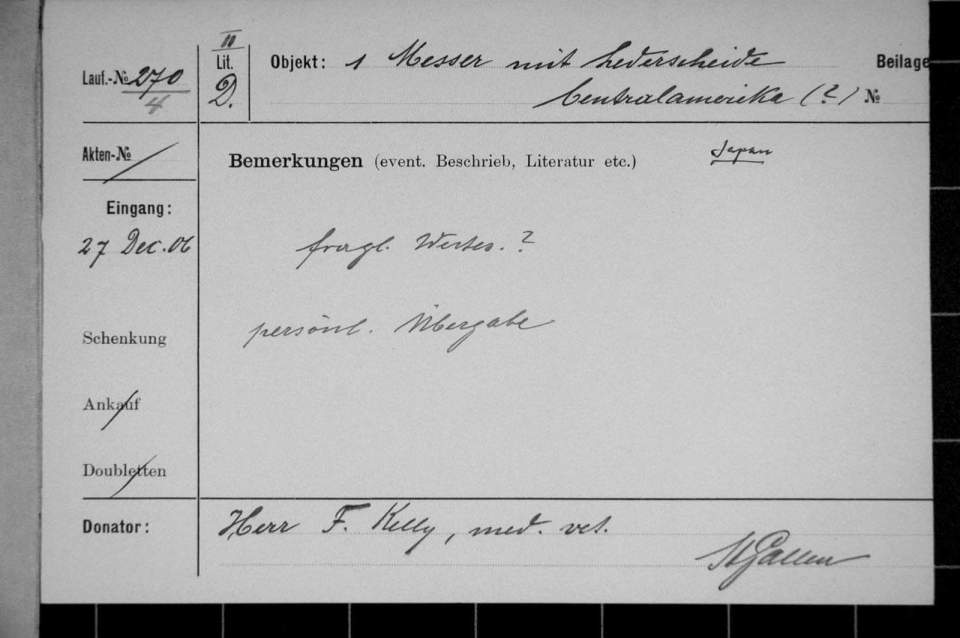 II
Lit.
D.
Lauf.-№ 270
4
Objekt: 1 Messer mit Lederscheide
Centralamerika (?)
Beilage
№
Akten-№
Bemerkungen (event. Beschrieb, Literatur etc.)
Japan
Eingang:
27 Dec. 06
fragl. Wertes.?
Schenkung
persönl. Übergabe
Ankauf
Doubletten
Donator: Herr F. Kelly, med. vet.
St Gallen